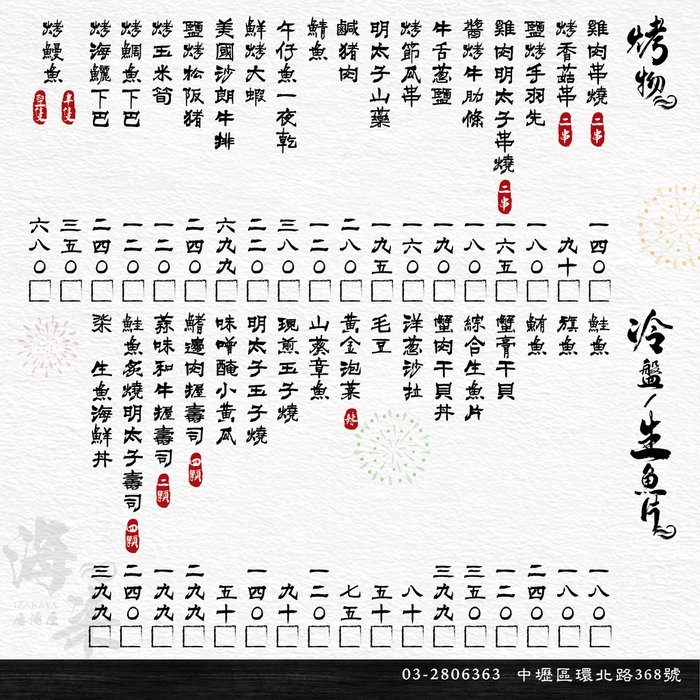 烤物
雞肉串燒 二串 一四〇
烤香菇串 二串 九十
鹽烤手羽先 一八〇
雞肉明太子串燒 二串 一六五
醬烤牛肋條 一八〇
牛舌蔥鹽 一九〇
烤節瓜串 一六〇
明太子山藥 一九五
鹹豬肉 二八〇
鯖魚 一二〇
午仔魚一夜乾 三八〇
鮮烤大蝦 二二〇
美國沙朗牛排 六九九
鹽烤松阪豬 二四〇
烤玉米筍 一二〇
烤鯛魚下巴 一二〇
烤海鱺下巴 二四〇
烤鰻魚
半隻 三五〇
整隻 六八〇
冷盤/生魚片
鮭魚 一八〇
旗魚 一八〇
鮪魚 二四〇
蟹膏干貝 一二〇
綜合生魚片 三五〇
蟹肉干貝丼 三九九
洋蔥沙拉 八十
毛豆 五十
黃金泡菜 七五
山葵章魚 一二〇
現煎玉子燒 九十
明太子玉子燒 一四〇
味噌醃小黃瓜 五十
鰭邊肉握壽司 四顆 二九九
蒜味和牛握壽司 二顆 一九九
鮭魚炙燒明太子壽司 四顆 二四〇
柒 生魚海鮮丼 三九九
IZAKAYA
居酒屋
03-2806363 中壢區環北路368號